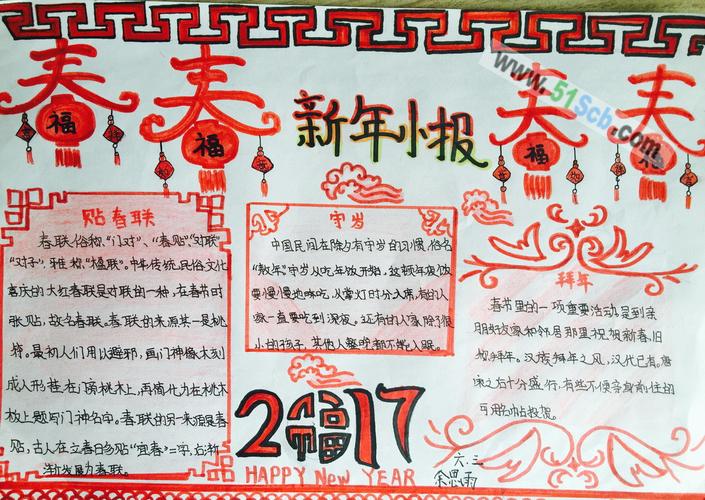 春
春
新年小报
春
春
福
福
福
www.51Sch.com
贴春联
春联,俗称“门对”、“春贴”,“对联”
“对子”,雅称“楹联”。中华传统民俗文化
喜庆的大红春联是对联的一种,在春节时
张贴,故名春联。春联的来源其一是桃
符。最初人们用以避邪,画门神像木刻
成人形挂在门旁桃木上,再简化为在桃木
板上题写门神名字。春联的另一来源是春
贴,古人在立春日多贴“宜春”二字,后渐
渐发展为春联。
守岁
中国民间在除夕有守岁的习惯,俗名
“熬年”守岁从吃年夜饭开始,这顿年夜饭
要慢慢地吃,从掌灯时分入席,有的人
家一直要吃到深夜。还有的人家除了很
小的孩子,其他人整晚都不能入眠。
拜年
春节里的一项重要活动是到亲
朋好友家和邻居那里祝贺新春,旧
称拜年。汉族拜年之风,汉代已有。唐
宋之后十分盛行,有些不便亲身前往的
可用名帖投贺。
2福17
HAPPY NEW YEAR
六.三
余思雨